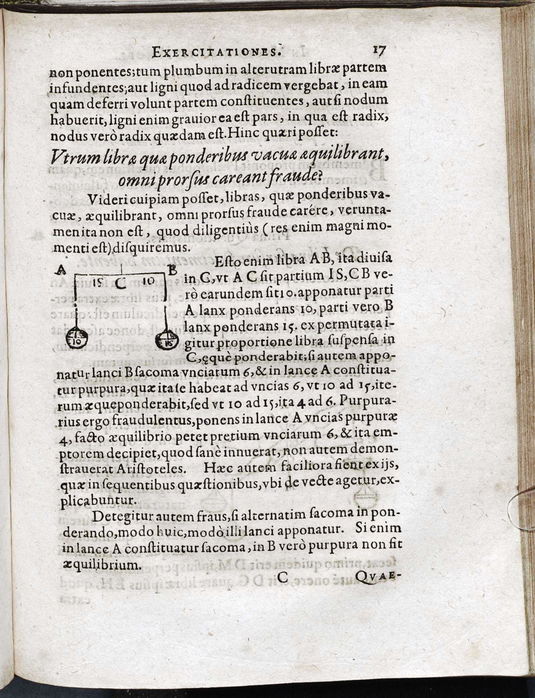 EXERCITATIONES. 17
non ponentes; tum plumbum in alterutram libræ partem
infundentes; aut ligni quod ad radicem vergebat, in eam
quam deferri volunt partem constituentes, aut si nodum
habuerit, ligni enim grauior ea est pars, in qua est radix,
nodus verò radix quædam est. Hinc quæri posset:
Vtrum libræ quæ ponderibus vacuæ æquilibrant,
omni prorsus careant fraude?
Videri cuipiam posset, libras, quæ ponderibus va-
cuæ, æquilibrant, omni prorsus fraude carére, verunta-
men ita non est, quod diligentiùs (res enim magni mo-
menti est) disquiremus.
A B
15 C 10
10 15
Esto enim libra AB, ita diuisa
in C, vt AC sit partium 15, CB ve-
rò earundem sit 10. apponatur parti
A lanx ponderans 10, parti vero B
lanx ponderans 15. ex permutata i-
gitur proportione libra suspensa in
C, æquè ponderabit; si autem appo-
natur lanci B sacoma vnciarum 6, & in lance A constitua-
tur purpura, quæ ita se habeat ad vncias 6, vt 10 ad 15, ite-
rum æqueponderabit, sed vt 10 ad 15, ita 4 ad 6. Purpura-
rius ergo fraudulentus, ponens in lance A vncias purpuræ
4, facto æquilibrio petet pretium vnciarum 6, & ita em-
ptorem decipiet, quod sanè innuerat, non autem demon-
strauerat Aristoteles. Hæc autem faciliora fient ex ijs,
quæ in sequentibus quæstionibus, vbi de vecte agetur, ex-
plicabuntur.
Detegitur autem fraus, si alternatim sacoma in pon-
derando, modo huic, modò illi lanci apponatur. Si enim
in lance A constituatur sacoma, in B verò purpura non fit
æquilibrium.
C QVAE-